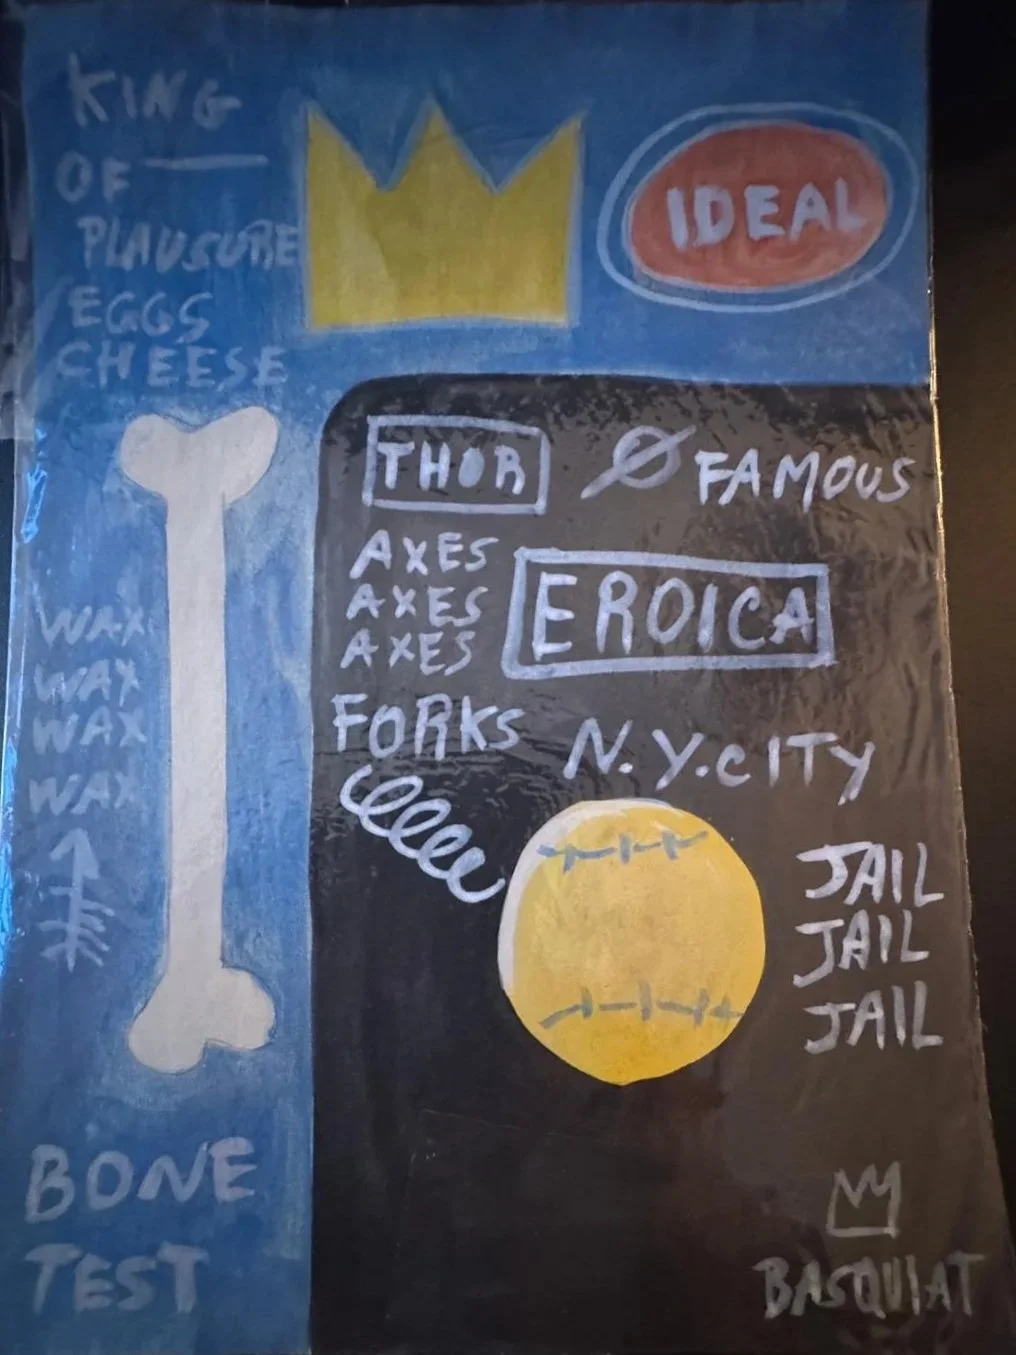 KING
OF
PLAUSURE
EGGS
CHEESE
IDEAL
THOR
FAMOUS
AXES
AXES
AXES
EROICA
FORKS
N.Y.CITY
WAX
WAX
WAX
WAX
JAIL
JAIL
JAIL
BONE
TEST
BASQUIAT